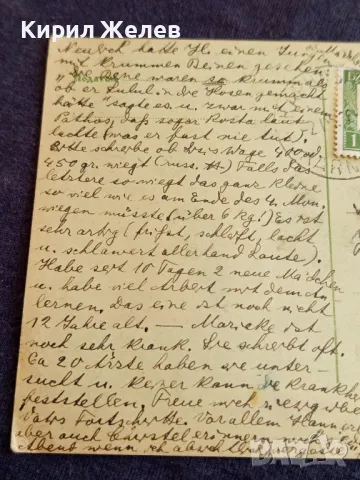 Кирил Желев
Neulich hatte Hl. einen Jungen
mit krummen Beinen gesehen.
"Die Beine waren so krumm als
ob er Lulul in die Hosen gemacht
hätte" sagte es u. zwar mit einem
Pathos, daß sogar Rosta laut
lachte (was er fast nie tut).
Bitte schreibe ob Wage 400 od.
450 gr. wiegt (russ. ) Falls das
letztere so wiegt das ganz kleine
so viel wie es am Ende des 4. Mon.
wiegen müsste (über 6 kg!) Es ist
sehr artig (frißt, schläft, lacht
u. schlawert allerhand Laute).
Habe seit 10 Tagen 2 neue Mädchen
u. habe viel Arbeit mit dem
lernen. Das eine ist noch nicht
12 Jahre alt. — Marieke ist
noch sehr krank. Sie schreibt oft.
Ca 20 Ärzte haben sie unter-
sucht u. keiner kann die Krankhei
feststellen. Freue mich riesig über
Vaters Fortschritte. Vor allem
aber auch
Abend wenn ich
bazar